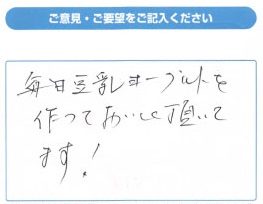 ご意見・ご要望をご記入ください
毎日豆乳ヨーグルトを
作っておいしく頂いて
ます!